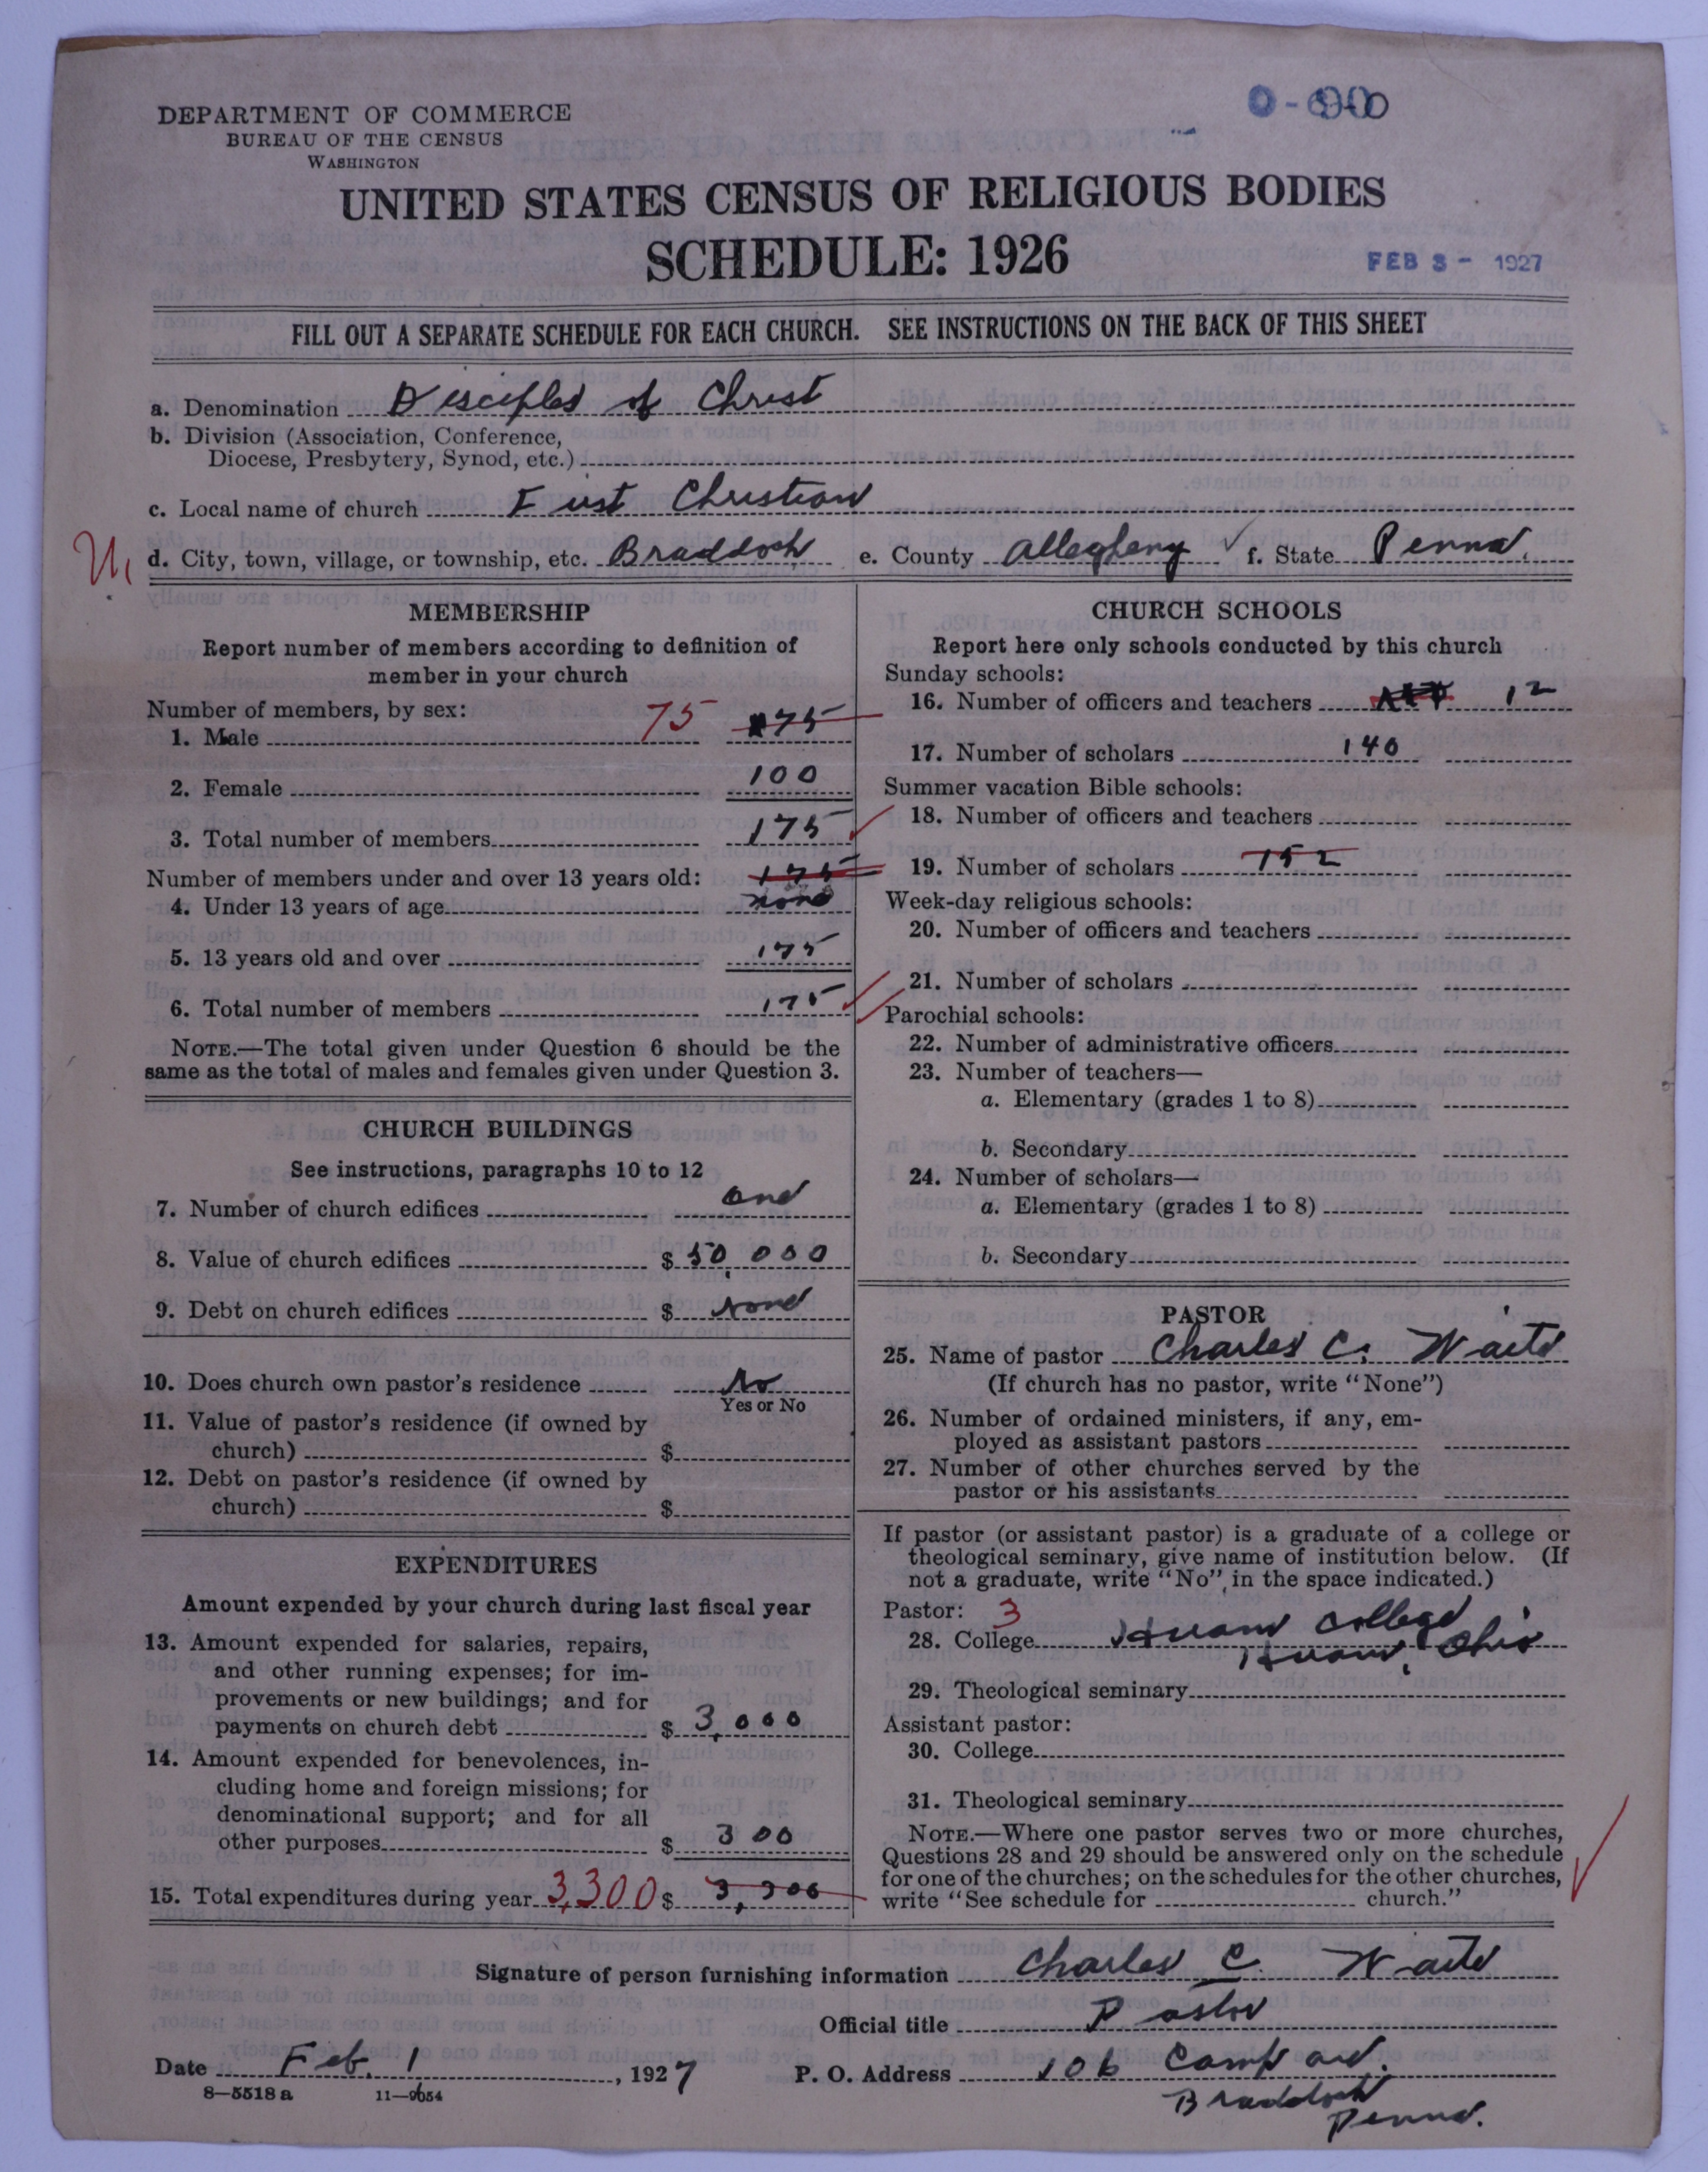 DEPARTMENT OF COMMERCE
BUREAU OF THE CENSUS
WASHINGTON
UNITED STATES CENSUS OF RELIGIOUS BODIES
SCHEDULE: 1926
FEB 3 - 1927
FILL OUT A SEPARATE SCHEDULE FOR EACH CHURCH. SEE INSTRUCTIONS ON THE BACK OF THIS SHEET
a. Denomination Disciples of Christ
b. Division (Association, Conference,
Diocese, Presbytery, Synod, etc.)
c. Local name of church First Christian
d. City, town, village, or township, etc. Braddock e. County Allegheny f. State Penna.
MEMBERSHIP
Report number of members according to definition of
member in your church
Number of members, by sex:
1. Male 75 75
2. Female 100
3. Total number of members 175
Number of members under and over 13 years old: 175
4. Under 13 years of age none
5. 13 years old and over 175
6. Total number of members 175
NOTE.—The total given under Question 6 should be the
same as the total of males and females given under Question 3.
CHURCH BUILDINGS
See instructions, paragraphs 10 to 12
7. Number of church edifices one
8. Value of church edifices $ 50,000
9. Debt on church edifices $ none
10. Does church own pastor's residence No
Yes or No
11. Value of pastor's residence (if owned by
church) $
12. Debt on pastor's residence (if owned by
church) $
EXPENDITURES
Amount expended by your church during last fiscal year
13. Amount expended for salaries, repairs,
and other running expenses; for im-
provements or new buildings; and for
payments on church debt $ 3,000
14. Amount expended for benevolences, in-
cluding home and foreign missions; for
denominational support; and for all
other purposes $ 300
15. Total expenditures during year 3,300 $ 3,300
CHURCH SCHOOLS
Report here only schools conducted by this church
Sunday schools:
16. Number of officers and teachers 12
17. Number of scholars 140
Summer vacation Bible schools:
18. Number of officers and teachers
19. Number of scholars 152
Week-day religious schools:
20. Number of officers and teachers
21. Number of scholars
Parochial schools:
22. Number of administrative officers
23. Number of teachers—
a. Elementary (grades 1 to 8)
b. Secondary
24. Number of scholars—
a. Elementary (grades 1 to 8)
b. Secondary
PASTOR
25. Name of pastor Charles C. Waite
(If church has no pastor, write "None")
26. Number of ordained ministers, if any, em-
ployed as assistant pastors
27. Number of other churches served by the
pastor or his assistants
If pastor (or assistant pastor) is a graduate of a college or
theological seminary, give name of institution below. (If
not a graduate, write "No" in the space indicated.)
Pastor: 3
28. College Hiram College
Hiram, Ohio
29. Theological seminary
Assistant pastor:
30. College
31. Theological seminary
NOTE.—Where one pastor serves two or more churches,
Questions 28 and 29 should be answered only on the schedule
for one of the churches; on the schedules for the other churches,
write "See schedule for church."
Signature of person furnishing information Charles C. Waite
Official title Pastor
Date Feb. 1, 1927 P. O. Address 106 Camp av.
Braddock
Penna.
8—5518 a 11—9654